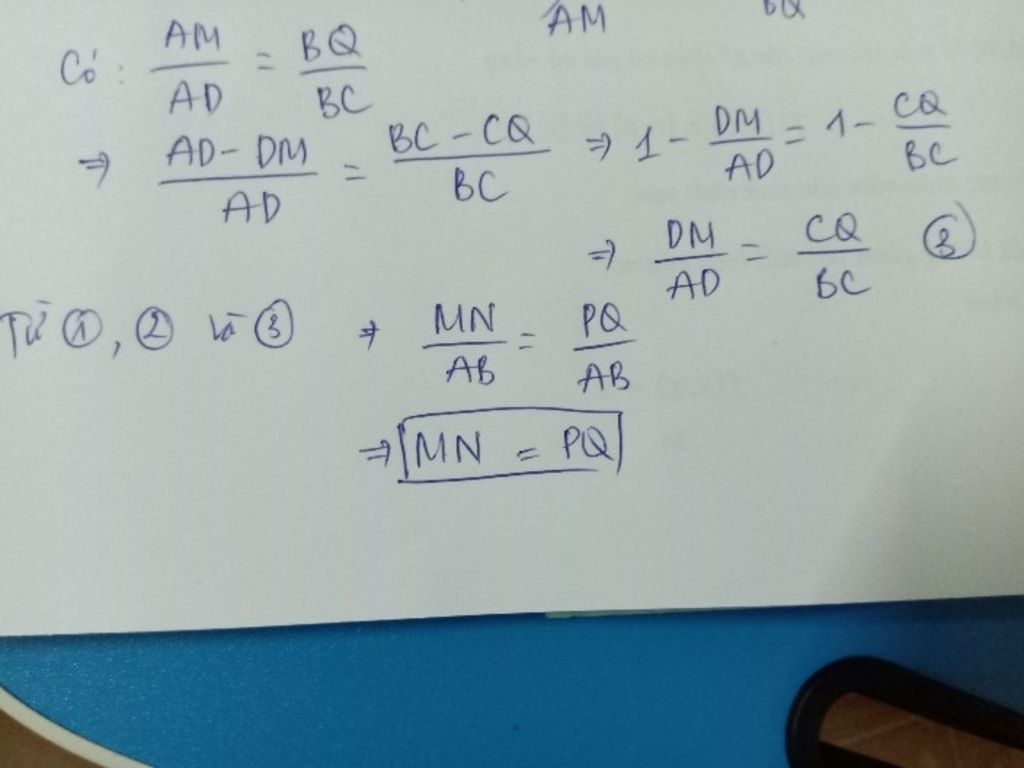 AM BQ
Có: AM/AD = BQ/BC
⇒ AD - DM/AD = BC - CQ/BC ⇒ 1 - DM/AD = 1 - CQ/BC
⇒ DM/AD = CQ/BC ③
Từ ①, ② và ③ ⇒ MN/AB = PQ/AB
⇒ MN = PQ